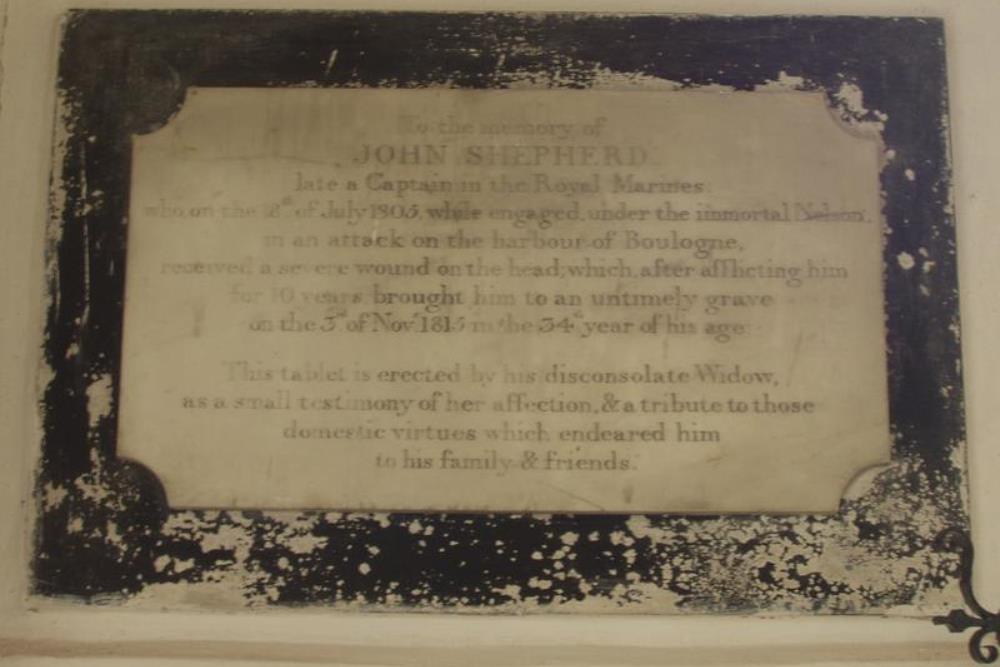 To the memory of
JOHN SHEPHERD
late a Captain in the Royal Marines
who, on the 18th of July 1805, while engaged, under the immortal Nelson,
in an attack on the harbour of Boulogne,
received a severe wound on the head; which, after afflicting him
for 10 years brought him to an untimely grave
on the 3d of Novr 1815 in the 34th year of his age
This tablet is erected by his disconsolate Widow,
as a small testimony of her affection, & a tribute to those
domestic virtues which endeared him
to his family & friends.